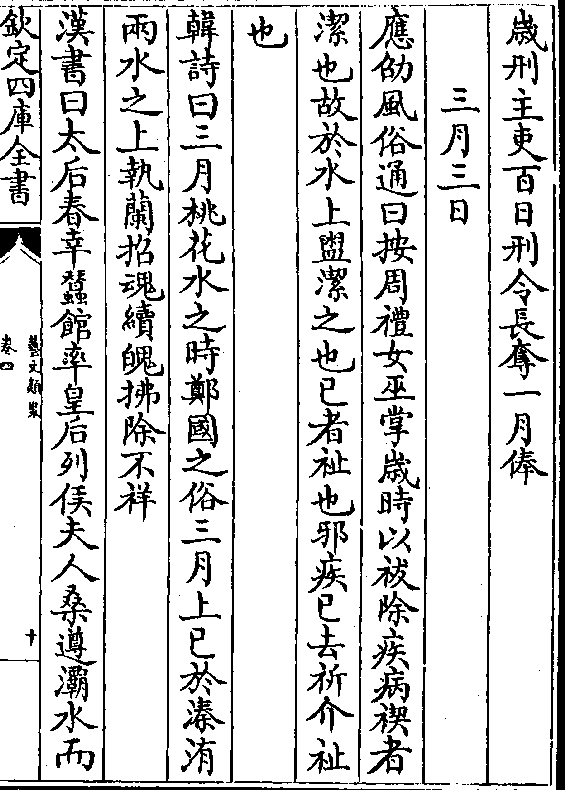 歲刑主吏百日刑令長奪一月俸
三月三日
應劭風俗通曰按周禮女巫掌歲時以祓除疾病禊者
潔也故於水上盥潔之也已者祉也邪疾已去祈介祉
也
韓詩曰三月桃花水之時鄭國之俗三月上巳於溱洧
兩水之上執蘭招魂續魄拂除不祥
漢書曰太后春幸蠶館率皇后列侯夫人桑遵灞水而
欽定四庫全書
藝文類聚
卷四
十